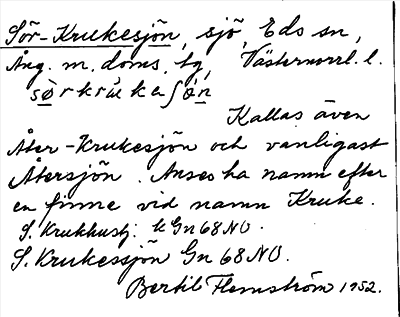 Sör-Krukesjön, sjö, Eds sn,
Ång. m. doms. tg, Västernorrl. l.
sò̱rkrùkaʃö́n̲
Kallas även
Åter-Krukesjön och vanligast
Återsjön. Anses ha namn efter
en finne vid namn Kruke.
S. Krukhustj. k Gn 68 NV.
S. Krukessjön Gn 68 NV.
Bertil Flemström 1952.